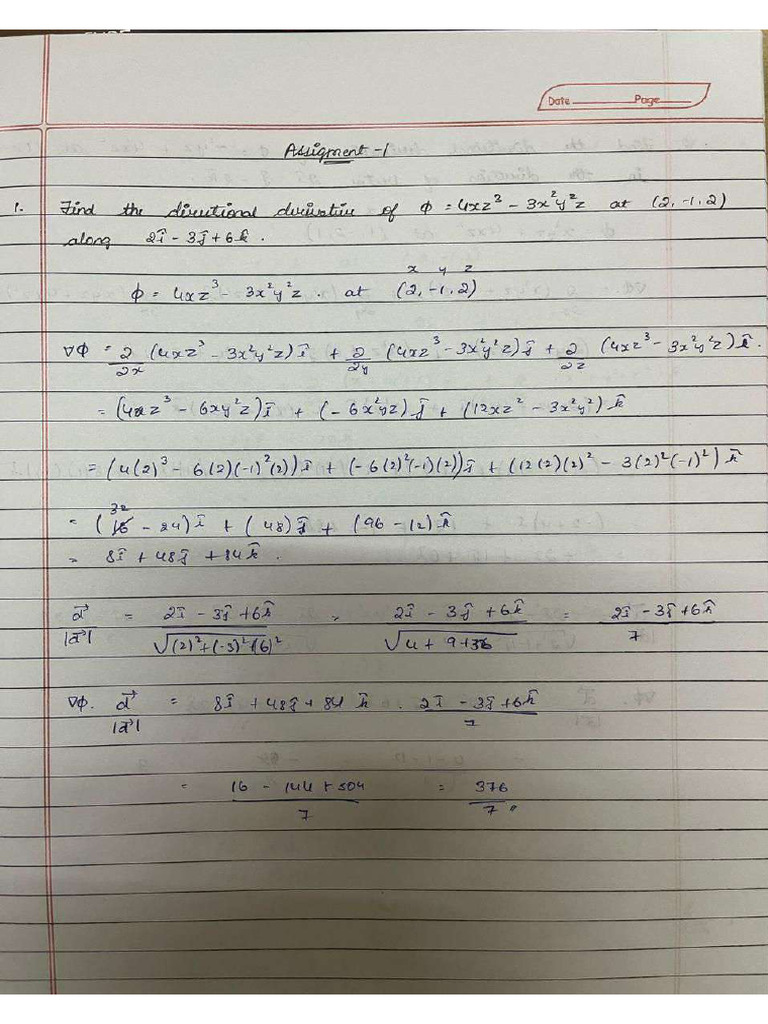 Date Page
Assigment -1
1. Find the directional derivative of ϕ = 4xz³ - 3x²y²z at (2,-1,2)
along 2î - 3ĵ + 6k̂.
x y z
ϕ = 4xz³ 3x²y²z. at (2,-1,2)
∇ϕ = ∂/∂x (4xz³ - 3x²y²z)î + ∂/∂y (4xz³ - 3x²y²z)ĵ + ∂/∂z (4xz³ - 3x²y²z)k̂.
= (4xz³ - 6xy²z)î + (-6x²yz)ĵ + (12xz² - 3x²y²)k̂
= (4(2)³ - 6(2)(-1)²(2))î + (-6(2)²(-1)(2))ĵ + (12(2)(2)² - 3(2)²(-1)²)k̂
32
= (16 - 24)î + (48)ĵ + (96 - 12)k̂
= 8î + 48ĵ + 84k̂.
a⃗/|a⃗| = 2î - 3ĵ + 6k̂/√(2)²+(-3)²+(6)² = 2î - 3ĵ + 6k̂/√4 + 9 + 36 = 2î - 3ĵ + 6k̂/7
∇ϕ. a⃗/|a⃗| = 8î + 48ĵ + 84k̂ . 2î - 3ĵ + 6k̂/7
= 16 - 144 + 504/7 = 376/7.